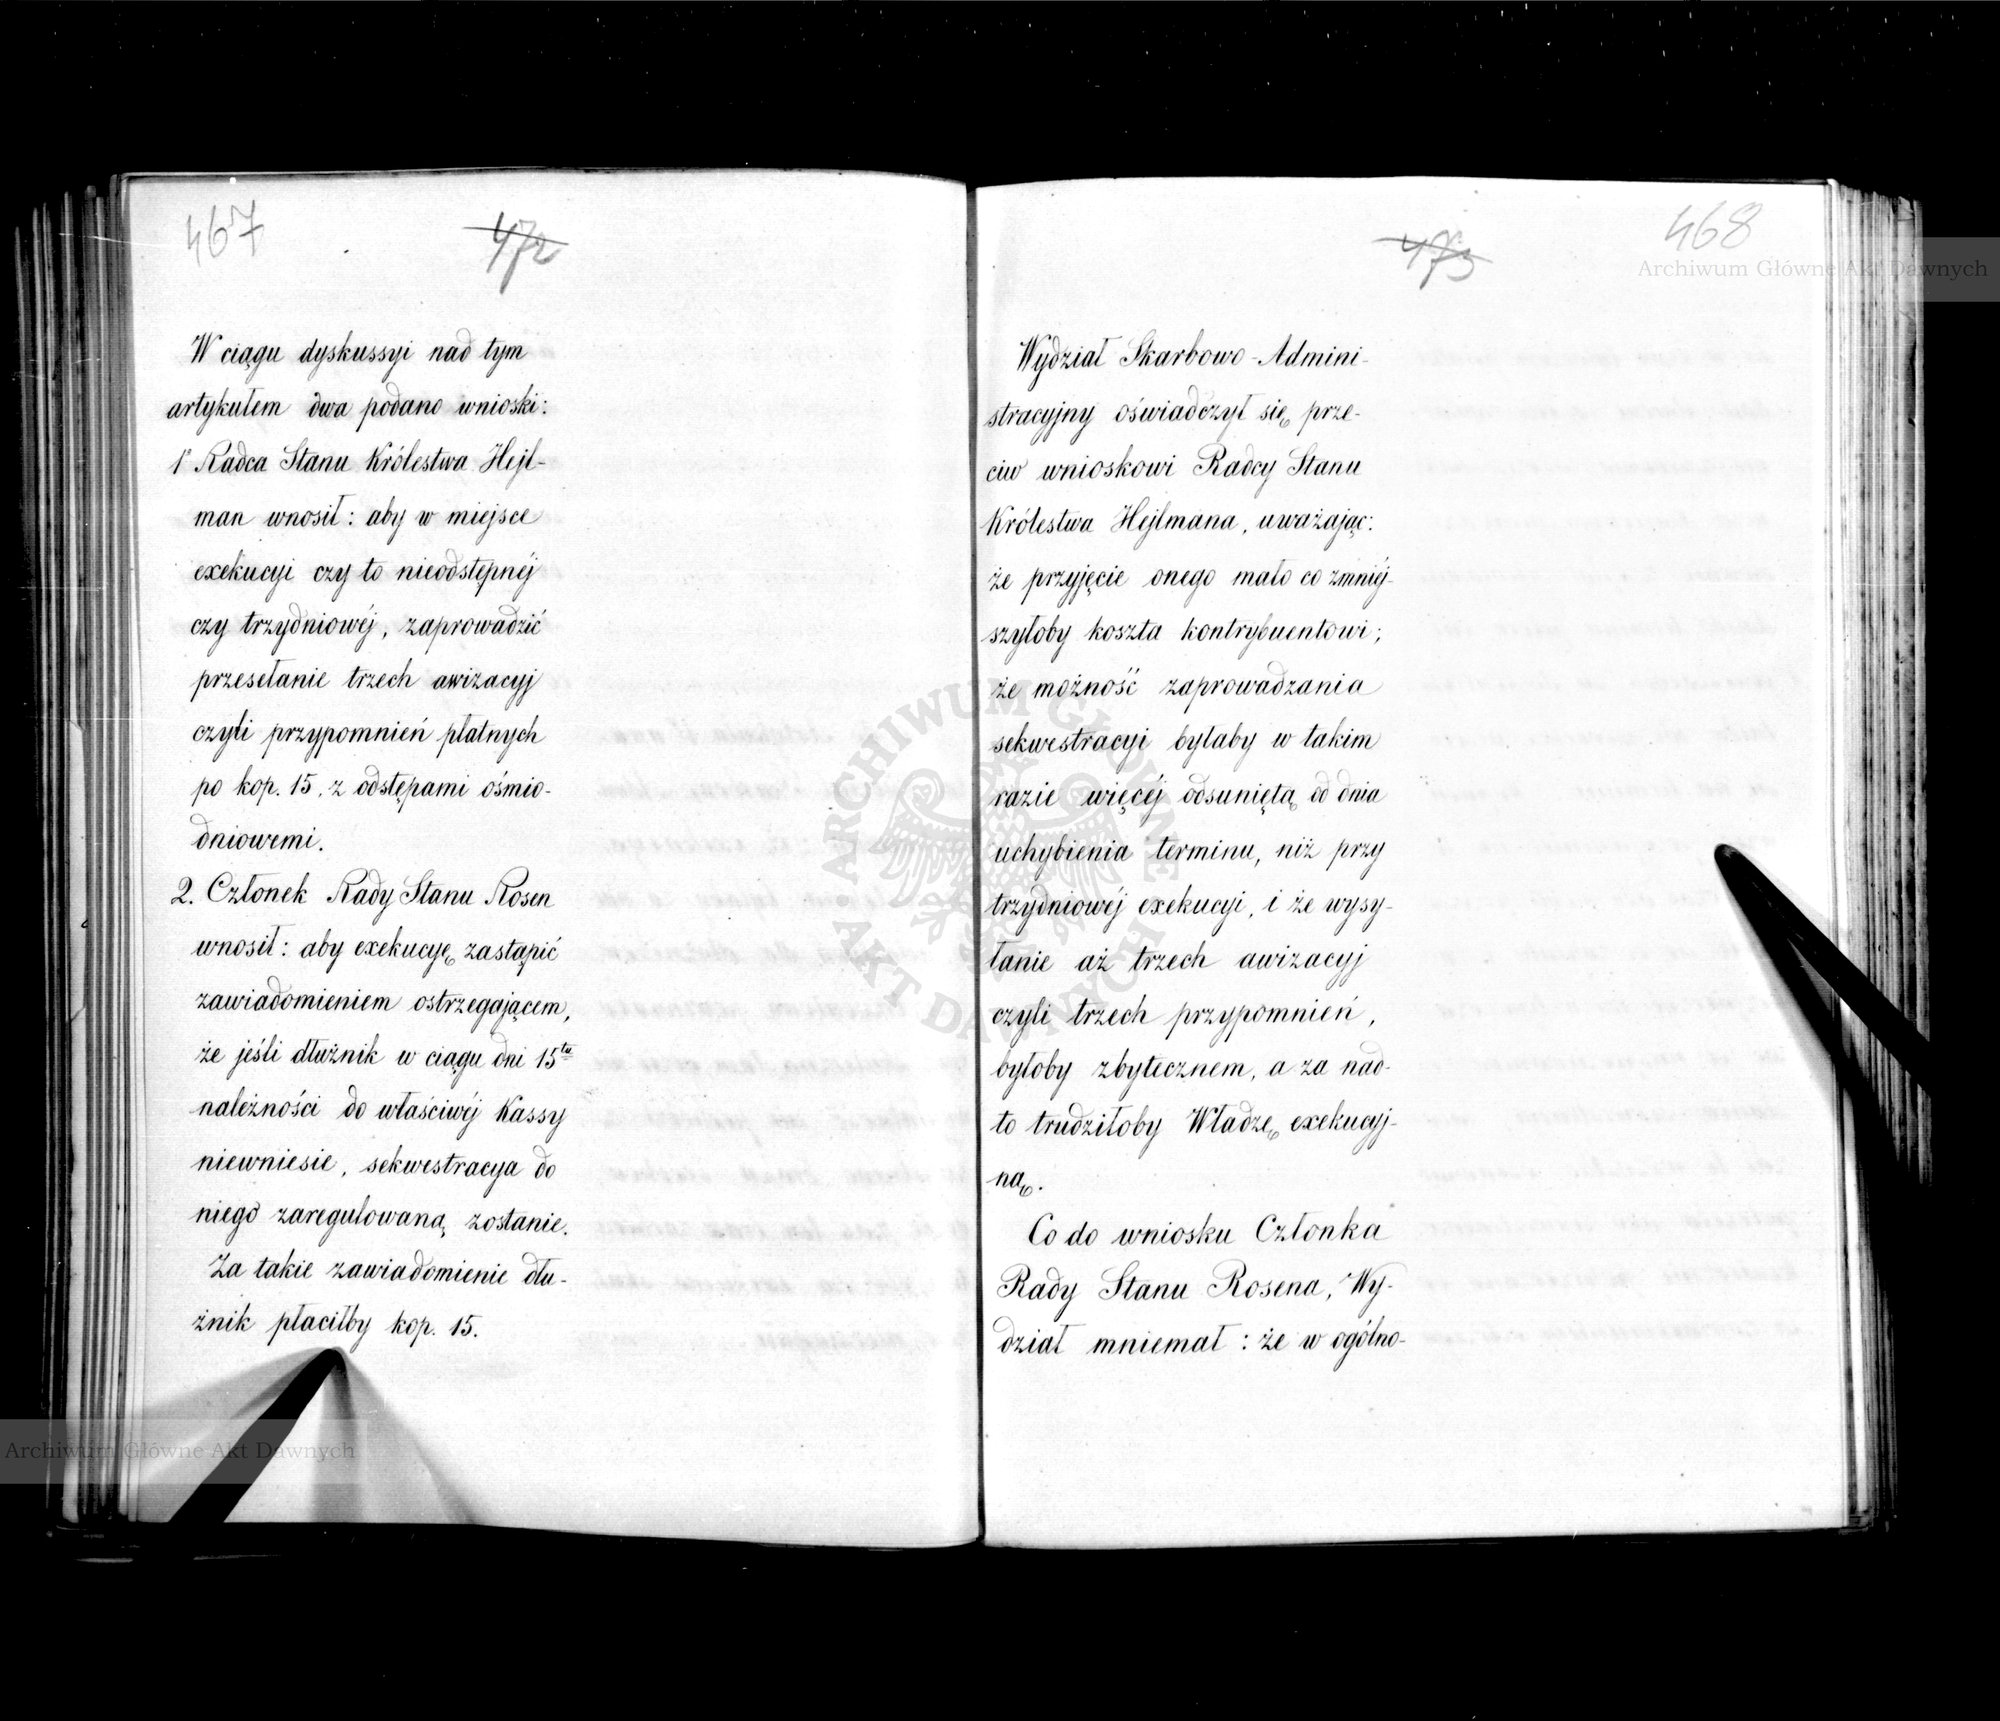 467
472
W ciągu dyskussyi nad tym
artykułem dwa podano wnioski:
1° Radca Stanu Królestwa Hejl-
man wnosił: aby w miejsce
exekucyi czy to nieodstępnéj
czy trzydniowéj, zaprowadzić
przesełanie trzech awizacyj
czyli przypomnień płatnych
po kop. 15, z odstępami ośmio-
dniowemi.
2. Członek Rady Stanu Rosen
wnosił: aby exekucyę zastąpić
zawiadomieniem ostrzegającem,
że jeśli dłużnik w ciągu dni 15tu
należności do właściwéj Kassy
niewniesie, sekwestracya do
niego zaregulowaną zostanie.
Za takie zawiadomienie dłu-
żnik płaciłby kop. 15.
473
468
Wydział Skarbowo-Admini-
stracyjny oświadczył się prze-
ciw wnioskowi Radcy Stanu
Królestwa Hejlmana, uważając:
że przyjęcie onego mało co zmniéj-
szyłoby koszta kontrybuentowi;
że możność zaprowadzania
sekwestracyi byłaby w takim
razie więcéj odsuniętą od dnia
uchybienia terminu, niż przy
trzydniowéj exekucyi, i że wysy-
łanie aż trzech awizacyj
czyli trzech przypomnień,
byłoby zbytecznem, a za nad-
to trudziłoby Władzę exekucyj-
ną.
Co do wniosku Członka
Rady Stanu Rosena, Wy-
dział mniemał: że w ogólno-
Archiwum Główne Akt Dawnych
Archiwum Główne Akt Dawnych
ARCHIWUM GŁÓWNE AKT DAWNYCH